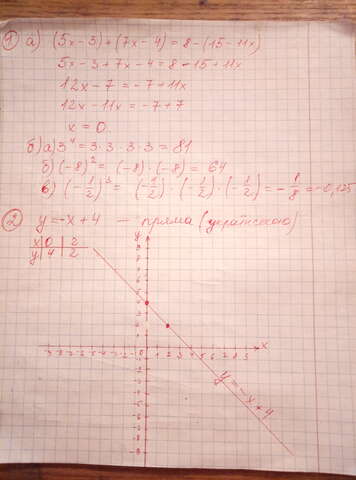 1 а) (5x - 3) + (7x - 4) = 8 - (15 - 11x)
5x - 3 + 7x - 4 = 8 - 15 + 11x
12x - 7 = -7 + 11x
12x - 11x = -7 + 7
x = 0.
б) а) 3⁴ = 3 · 3 · 3 · 3 = 81
б) (-8)² = (-8) · (-8) = 64
в) (-1/2)³ = (-1/2) · (-1/2) · (-1/2) = -1/8 = -0,125
2 y = -x + 4 — пряма (українською)
x 0 2
y 4 2
x
y
y = -x + 4